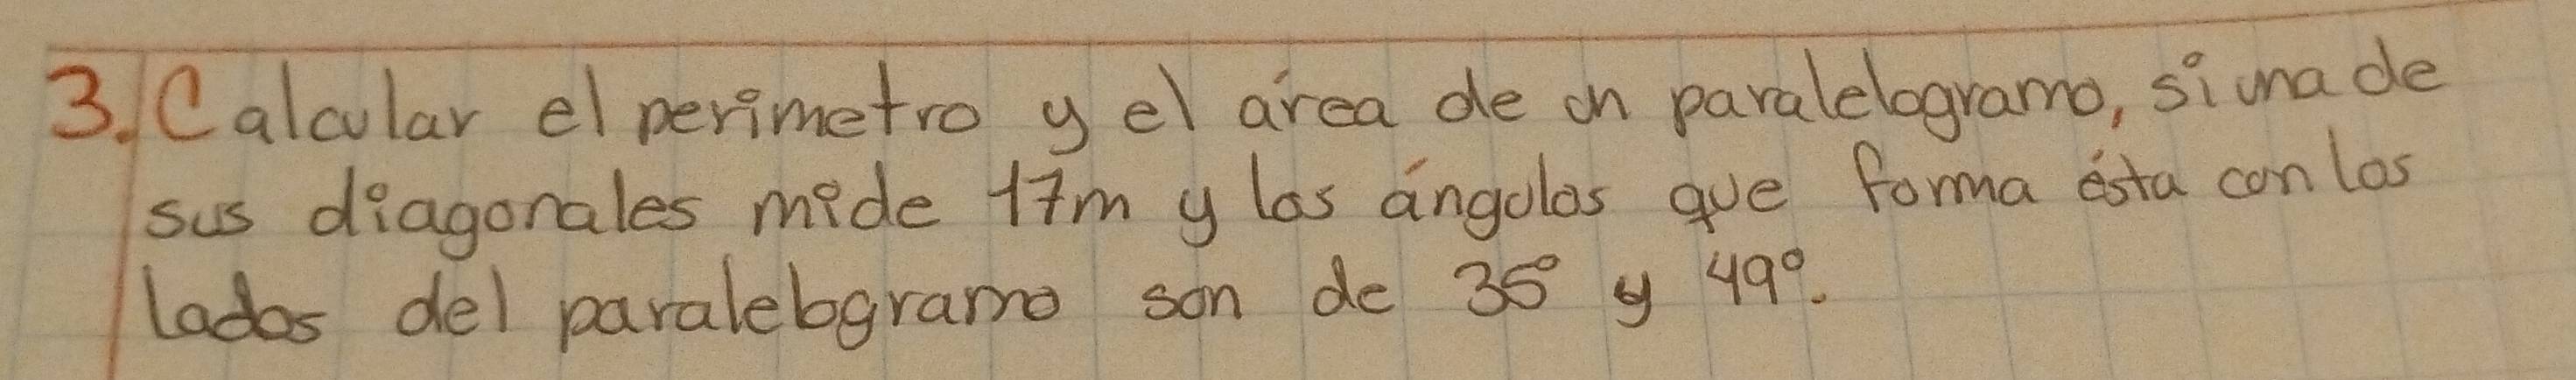 3. Calcular el perimetro y el área de un paralelogramo, si una de
sus diagonales mide 17m y los ángulos que forma ésta con los
lados del paralelogramo son de 35° y 49°.